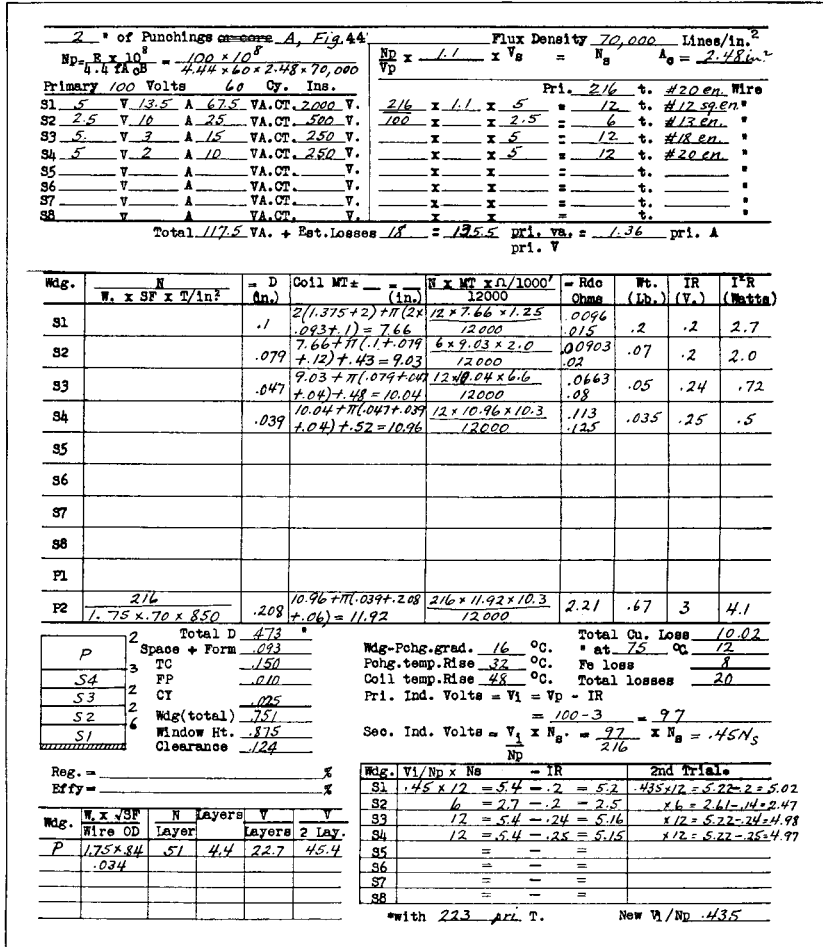 2 " of Punchings or core A, Fig. 44 Flux Density 70,000 Lines/in.²
Np = E x 10⁸ / 4.4 fAcB = 100 × 10⁸ / 4.44 × 60 × 2.48 × 70,000 Np/Vp x 1.1 x Vs = Ns Ac = 2.48 in.²
Primary 100 Volts 60 Cy. Ins. Pri. 216 t. #20 en. Wire
S1 5 V 13.5 A 67.5 VA.CT. 2000 V. 216 x 1.1 x 5 = 12 t. #12 sq.en. "
S2 2.5 V 10 A 25 VA.CT. 500 V. 100 x x 2.5 = 6 t. #13 en. "
S3 5. V 3 A 15 VA.CT. 250 V. x x 5 = 12 t. #18 en. "
S4 5 V 2 A 10 VA.CT. 250 V. x x 5 = 12 t. #20 en. "
S5 V A VA.CT. V. x x = t. "
S6 V A VA.CT. V. x x = t. "
S7 V A VA.CT. V. x x = t. "
S8 V A VA.CT. V. x x = t. "
Total 117.5 VA. + Est.Losses 18 = 135.5 pri. va. = 1.36 pri. A
pri. V
Wdg. N / W. x SF x T/in² = D (in.) Coil MT ± __ = __ (in.) N x MT x Ω/1000' / 12000 = Rdc Ohms Wt. (Lb.) IR (V.) I²R (Watts)
S1 .1 2(1.375+2)+π(2x .093+.1) = 7.66 12 × 7.66 × 1.25 / 12000 .0096 .015 .2 .2 2.7
S2 .079 7.66+π(.1+.079 +.12)+.43 = 9.03 6 × 9.03 × 2.0 / 12000 .00903 .02 .07 .2 2.0
S3 .047 9.03+π(.079+.047 +.04)+.48 = 10.04 12×10.04×6.6 / 12000 .0663 .08 .05 .24 .72
S4 .039 10.04+π(.047+.039 +.04)+.52 = 10.96 12 × 10.96 × 10.3 / 12000 .113 .125 .035 .25 .5
S5
S6
S7
S8
P1
P2 216 / 1.75 x .70 x 850 .208 10.96+π(.039+.208 +.06) = 11.92 216 × 11.92 × 10.3 / 12000 2.21 .67 3 4.1
P
S4
S3
S2
S1
2
3
2
2
6
Total D .473 "
Space + Form .093
TC .150
FP .010
CY .025
Wdg(total) .751
Window Ht. .875
Clearance .124
Wdg-Pchg.grad. 16 °C. Total Cu. Loss 10.02
Pchg.temp.Rise 32 °C. " at 75 °C 12
Coil temp.Rise 48 °C. Fe loss 8
Total losses 20
Pri. Ind. Volts = Vi = Vp - IR
= 100-3 = 97
Sec. Ind. Volts = Vi/Np x Ns. = 97/216 x Ns = .45Ns
Reg. = %
Effy= %
Wdg. W. x √SF / Wire OD N Layer Layers V Layers V 2 Lay.
P 1.75×.84 / .034 51 4.4 22.7 45.4
Wdg. Vi/Np x Ns - IR 2nd Trial*
S1 .45 × 12 = 5.4 - .2 = 5.2 .435x12 = 5.22-.2 = 5.02
S2 6 = 2.7 - .2 = 2.5 x 6 = 2.61-.14=2.47
S3 12 = 5.4 - .24 = 5.16 x 12 = 5.22-.24=4.98
S4 12 = 5.4 - .25 = 5.15 x 12 = 5.22-.25=4.97
S5 = - =
S6 = - =
S7 = - =
S8 = - =
*with 223 pri T. New Vi/Np .435